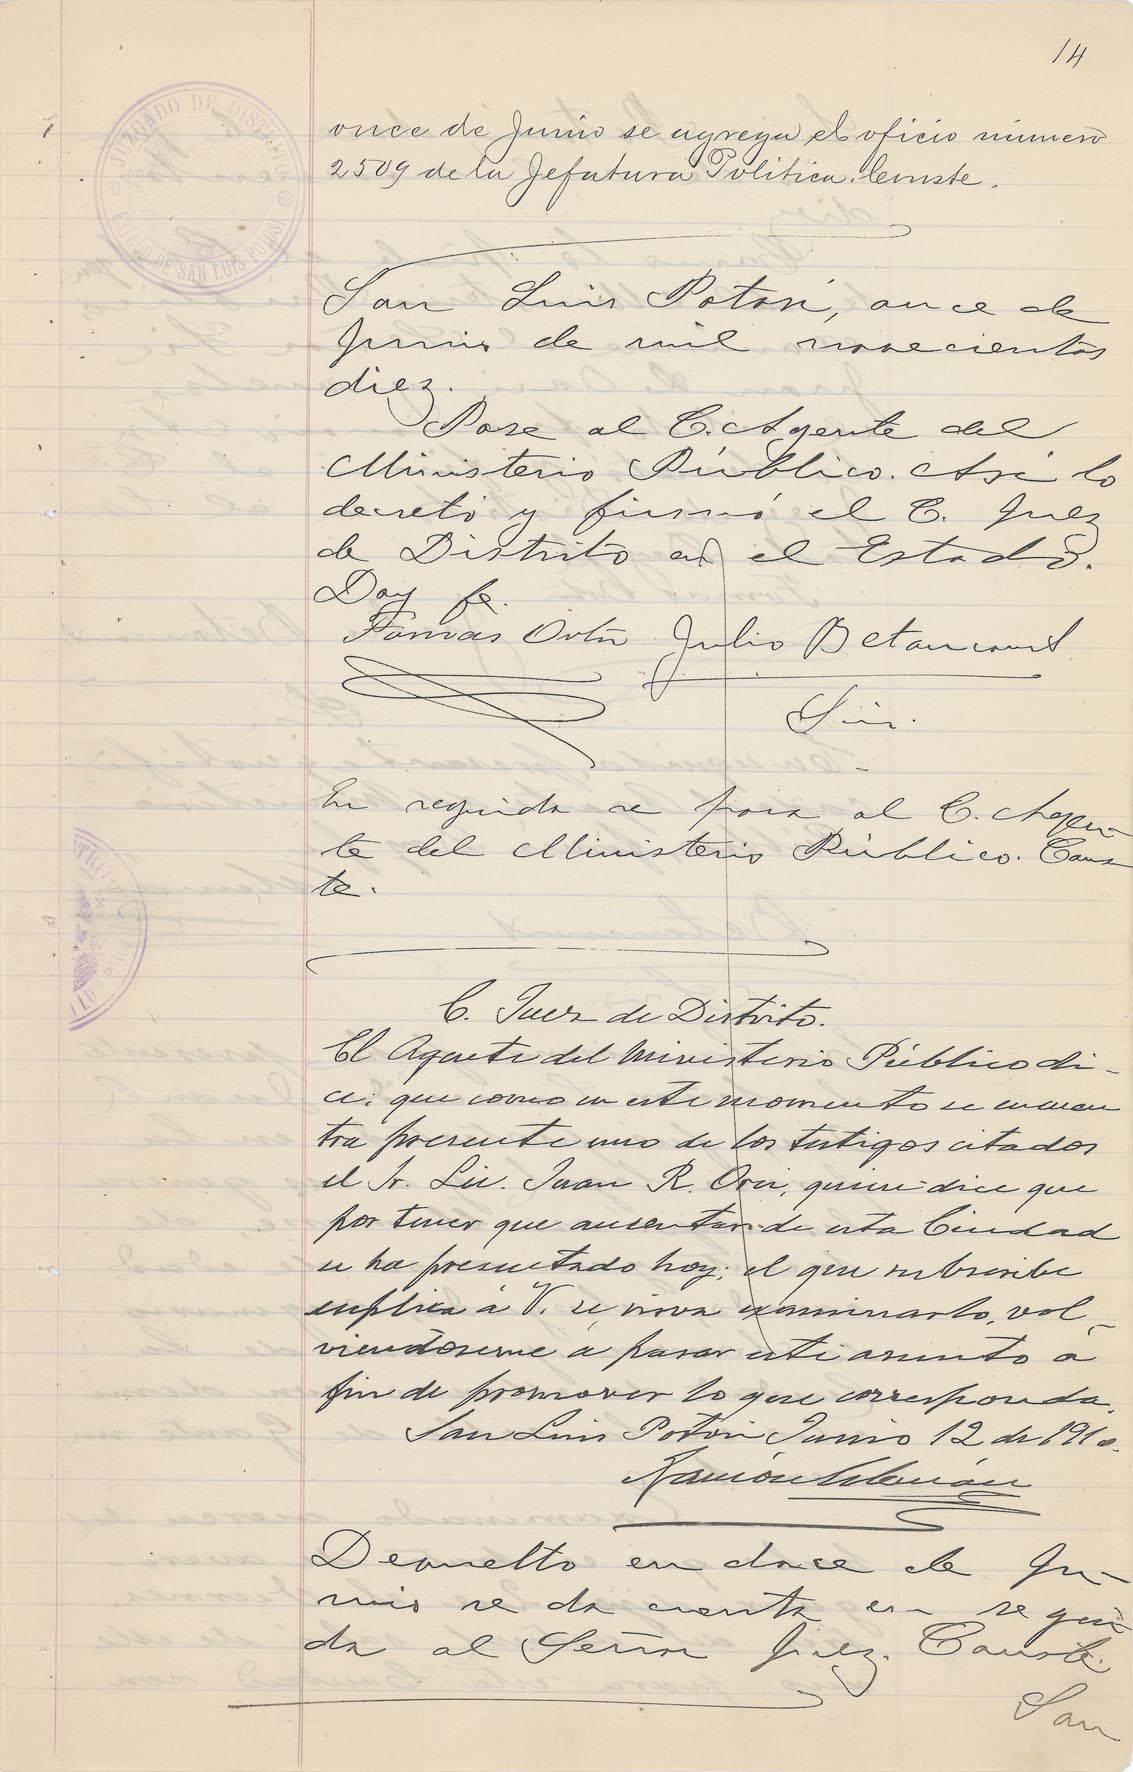 14
JUZGADO DE DISTRITO
ESTADO DE SAN LUIS POTOSI
once de Junio se agrega el oficio número
2509 de la Jefatura Política. Conste.
San Luis Potosí, once de
Junio de mil novecientos
diez.
Pase al C. Agente del
Ministerio Público. Así lo
decretó y firmó el C. Juez
de Distrito en el Estado.
Doy fe.
Tomás Ortiz Julio Betancourt
Srio.
En seguida se pasa al C. Agen-
te del Ministerio Público. Cons
te.
C. Juez de Distrito.
El Agente del Ministerio Público di-
ce: que como en este momento se encuen
tra presente uno de los testigos citados
el Sr. Lic. Juan R. quien dice que
por tener que ausentarse de esta Ciudad
se ha presentado hoy; el que subscribe
suplica á V. se sirva examinarlo, vol-
viendoseme á pasar este asunto a
fin de promover lo que corresponda.
San Luis Potosí Junio 12 de 1910.
Ramón Alemán
Devuelto en doce de Ju-
nio se da cuenta en segui
da al Señor Juez. Conste.
San